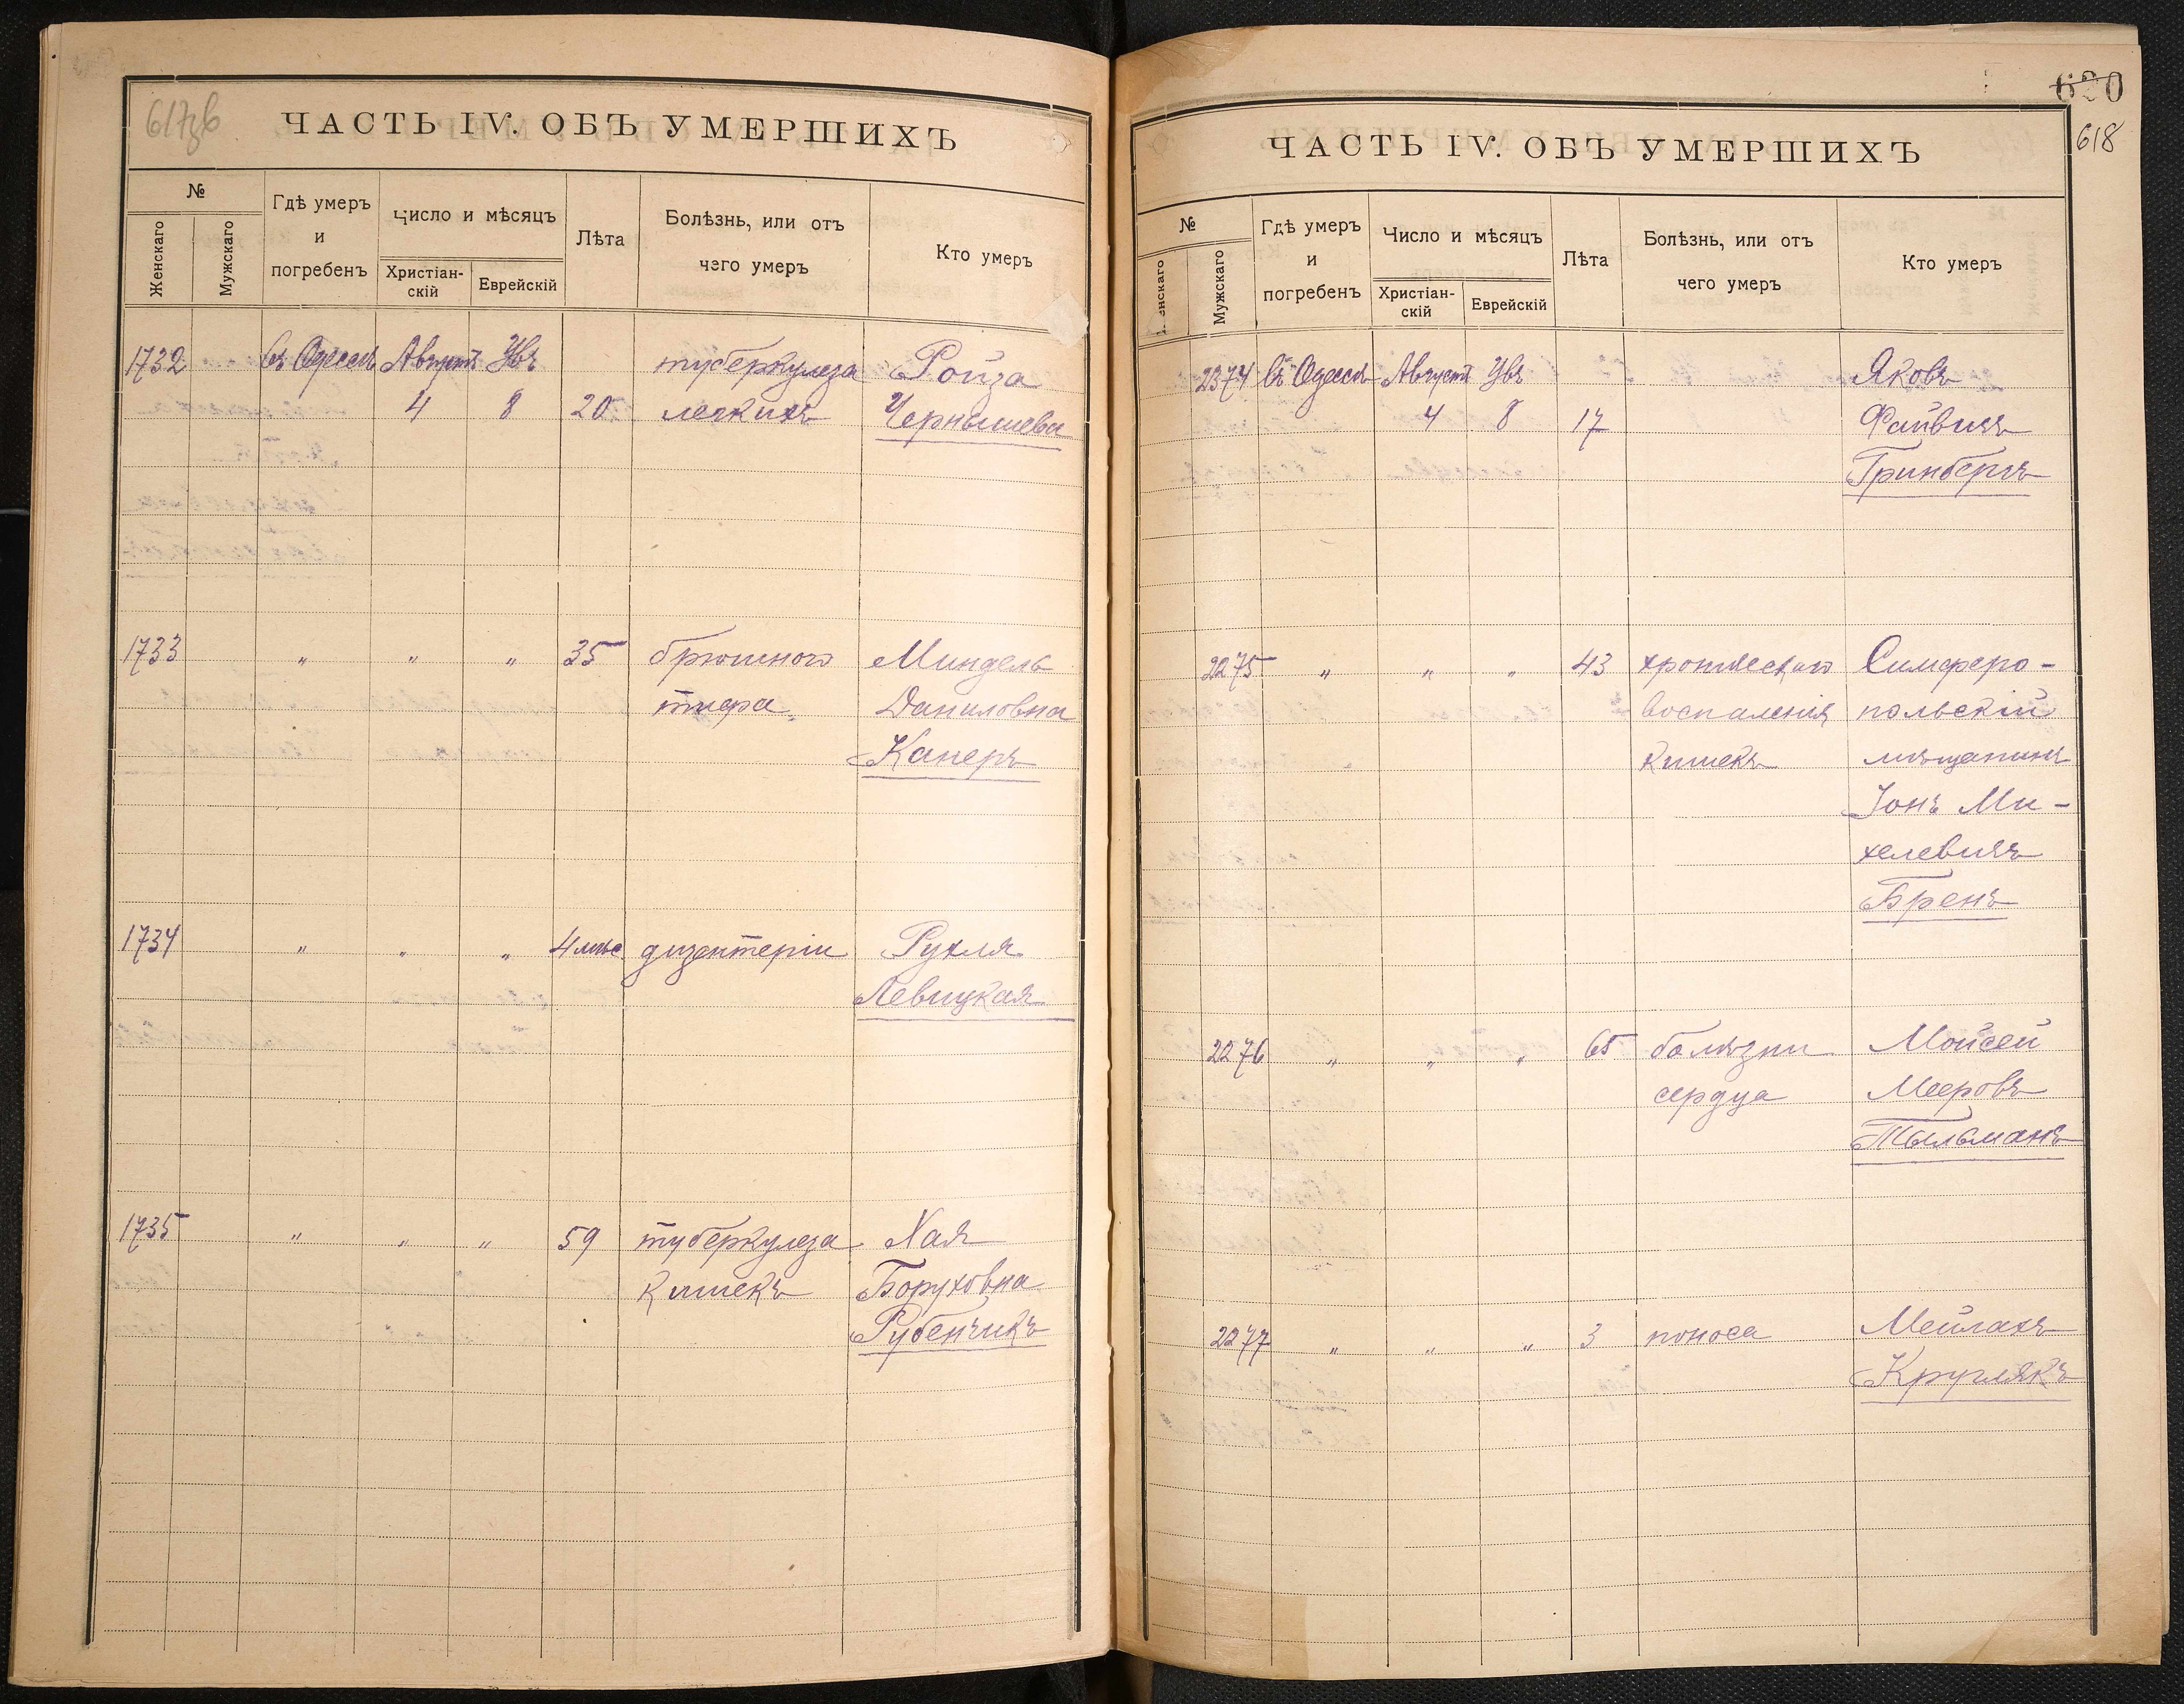 617зв
ЧАСТЬ IV. ОБЪ УМЕРШИХЪ
№
Женскаго
Мужскаго
Гдѣ умеръ
и
погребенъ
Число и мѣсяцъ
Христіан-
скій
Еврейскій
Лѣта
Болѣзнь, или отъ
чего умеръ
Кто умеръ
1732 въ Одессѣ Августъ Увъ туберкулеза Ройза
4 8 20 легкихъ Чернышева
1733 " " " 35 брюшного Миндель
тифа Даниловна
Канеръ
1734 " " " 4 мѣс дизентеріи Рухля
Левицкая
1735 " " " 59 туберкулеза Хая
кишекъ Боруховна
Рубенчикъ
620
618
ЧАСТЬ IV. ОБЪ УМЕРШИХЪ
№
Женскаго
Мужскаго
Гдѣ умеръ
и
погребенъ
Число и мѣсяцъ
Христіан-
скій
Еврейскій
Лѣта
Болѣзнь, или отъ
чего умеръ
Кто умеръ
2374 въ Одессѣ Августъ Увъ Яковъ
4 8 17 Файвишъ
Гринбергъ
2275 " " " 43 хроническаго Симферо-
воспаленія польскій
кишекъ мѣщанинъ
Іонъ Ми-
хелевичъ
Бренъ
2276 " " " 65 болѣзни Мойсей
сердца Мееровъ
Тыльманъ
2277 " " " 3 поноса Мейлахъ
Круглякъ